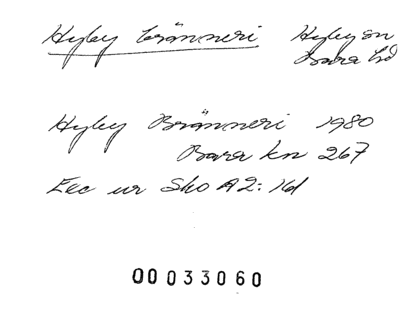 Hyby bränneri Hyby sn
Bara hd
Hyby Bränneri 1980
Bara kn 267
Exc ur Sko A2:16d
00033060